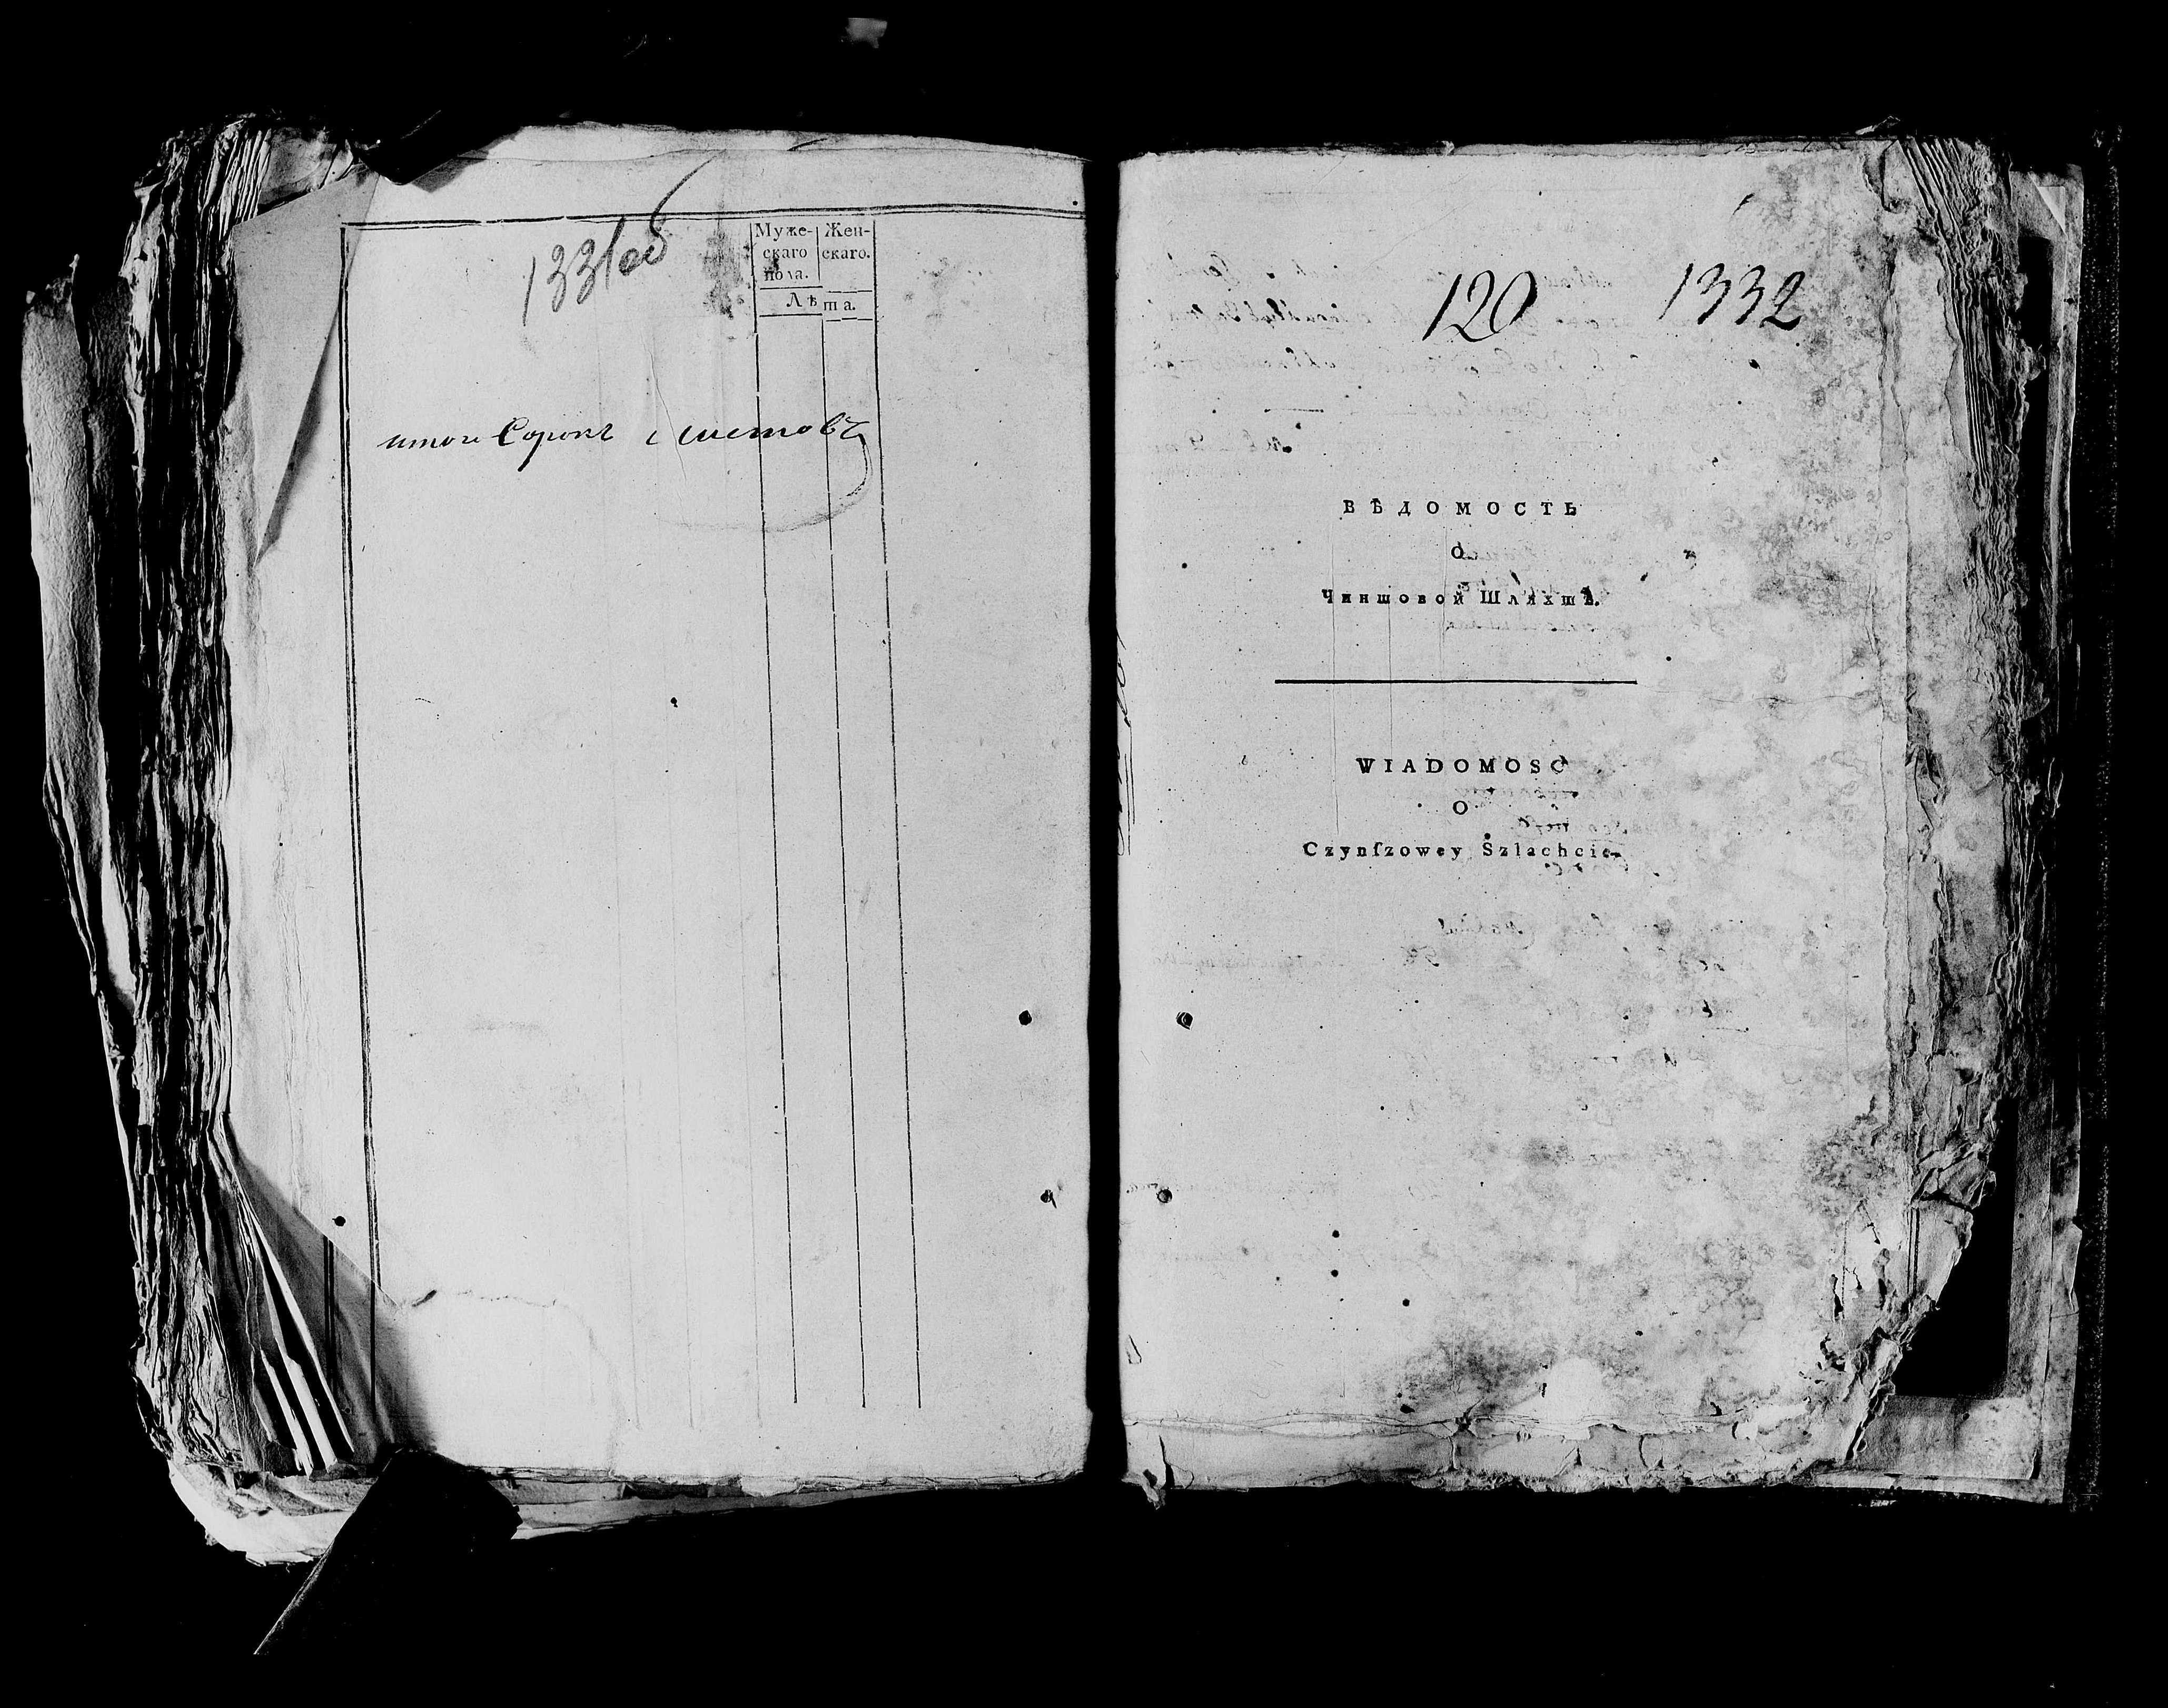 1331об
Муже- Жен-
скаго скаго.
пола.
Лѣта.
итого Сорокъ листовъ
120 1332
ВѢДОМОСТЬ
о
Чиншовой Шляхтѣ.
WIADOMOSC
O
Czynſzowey Szlachcie